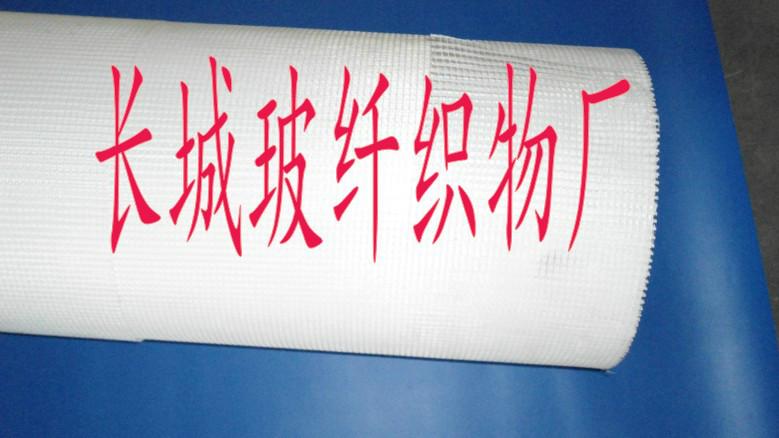 长城玻纤织物厂